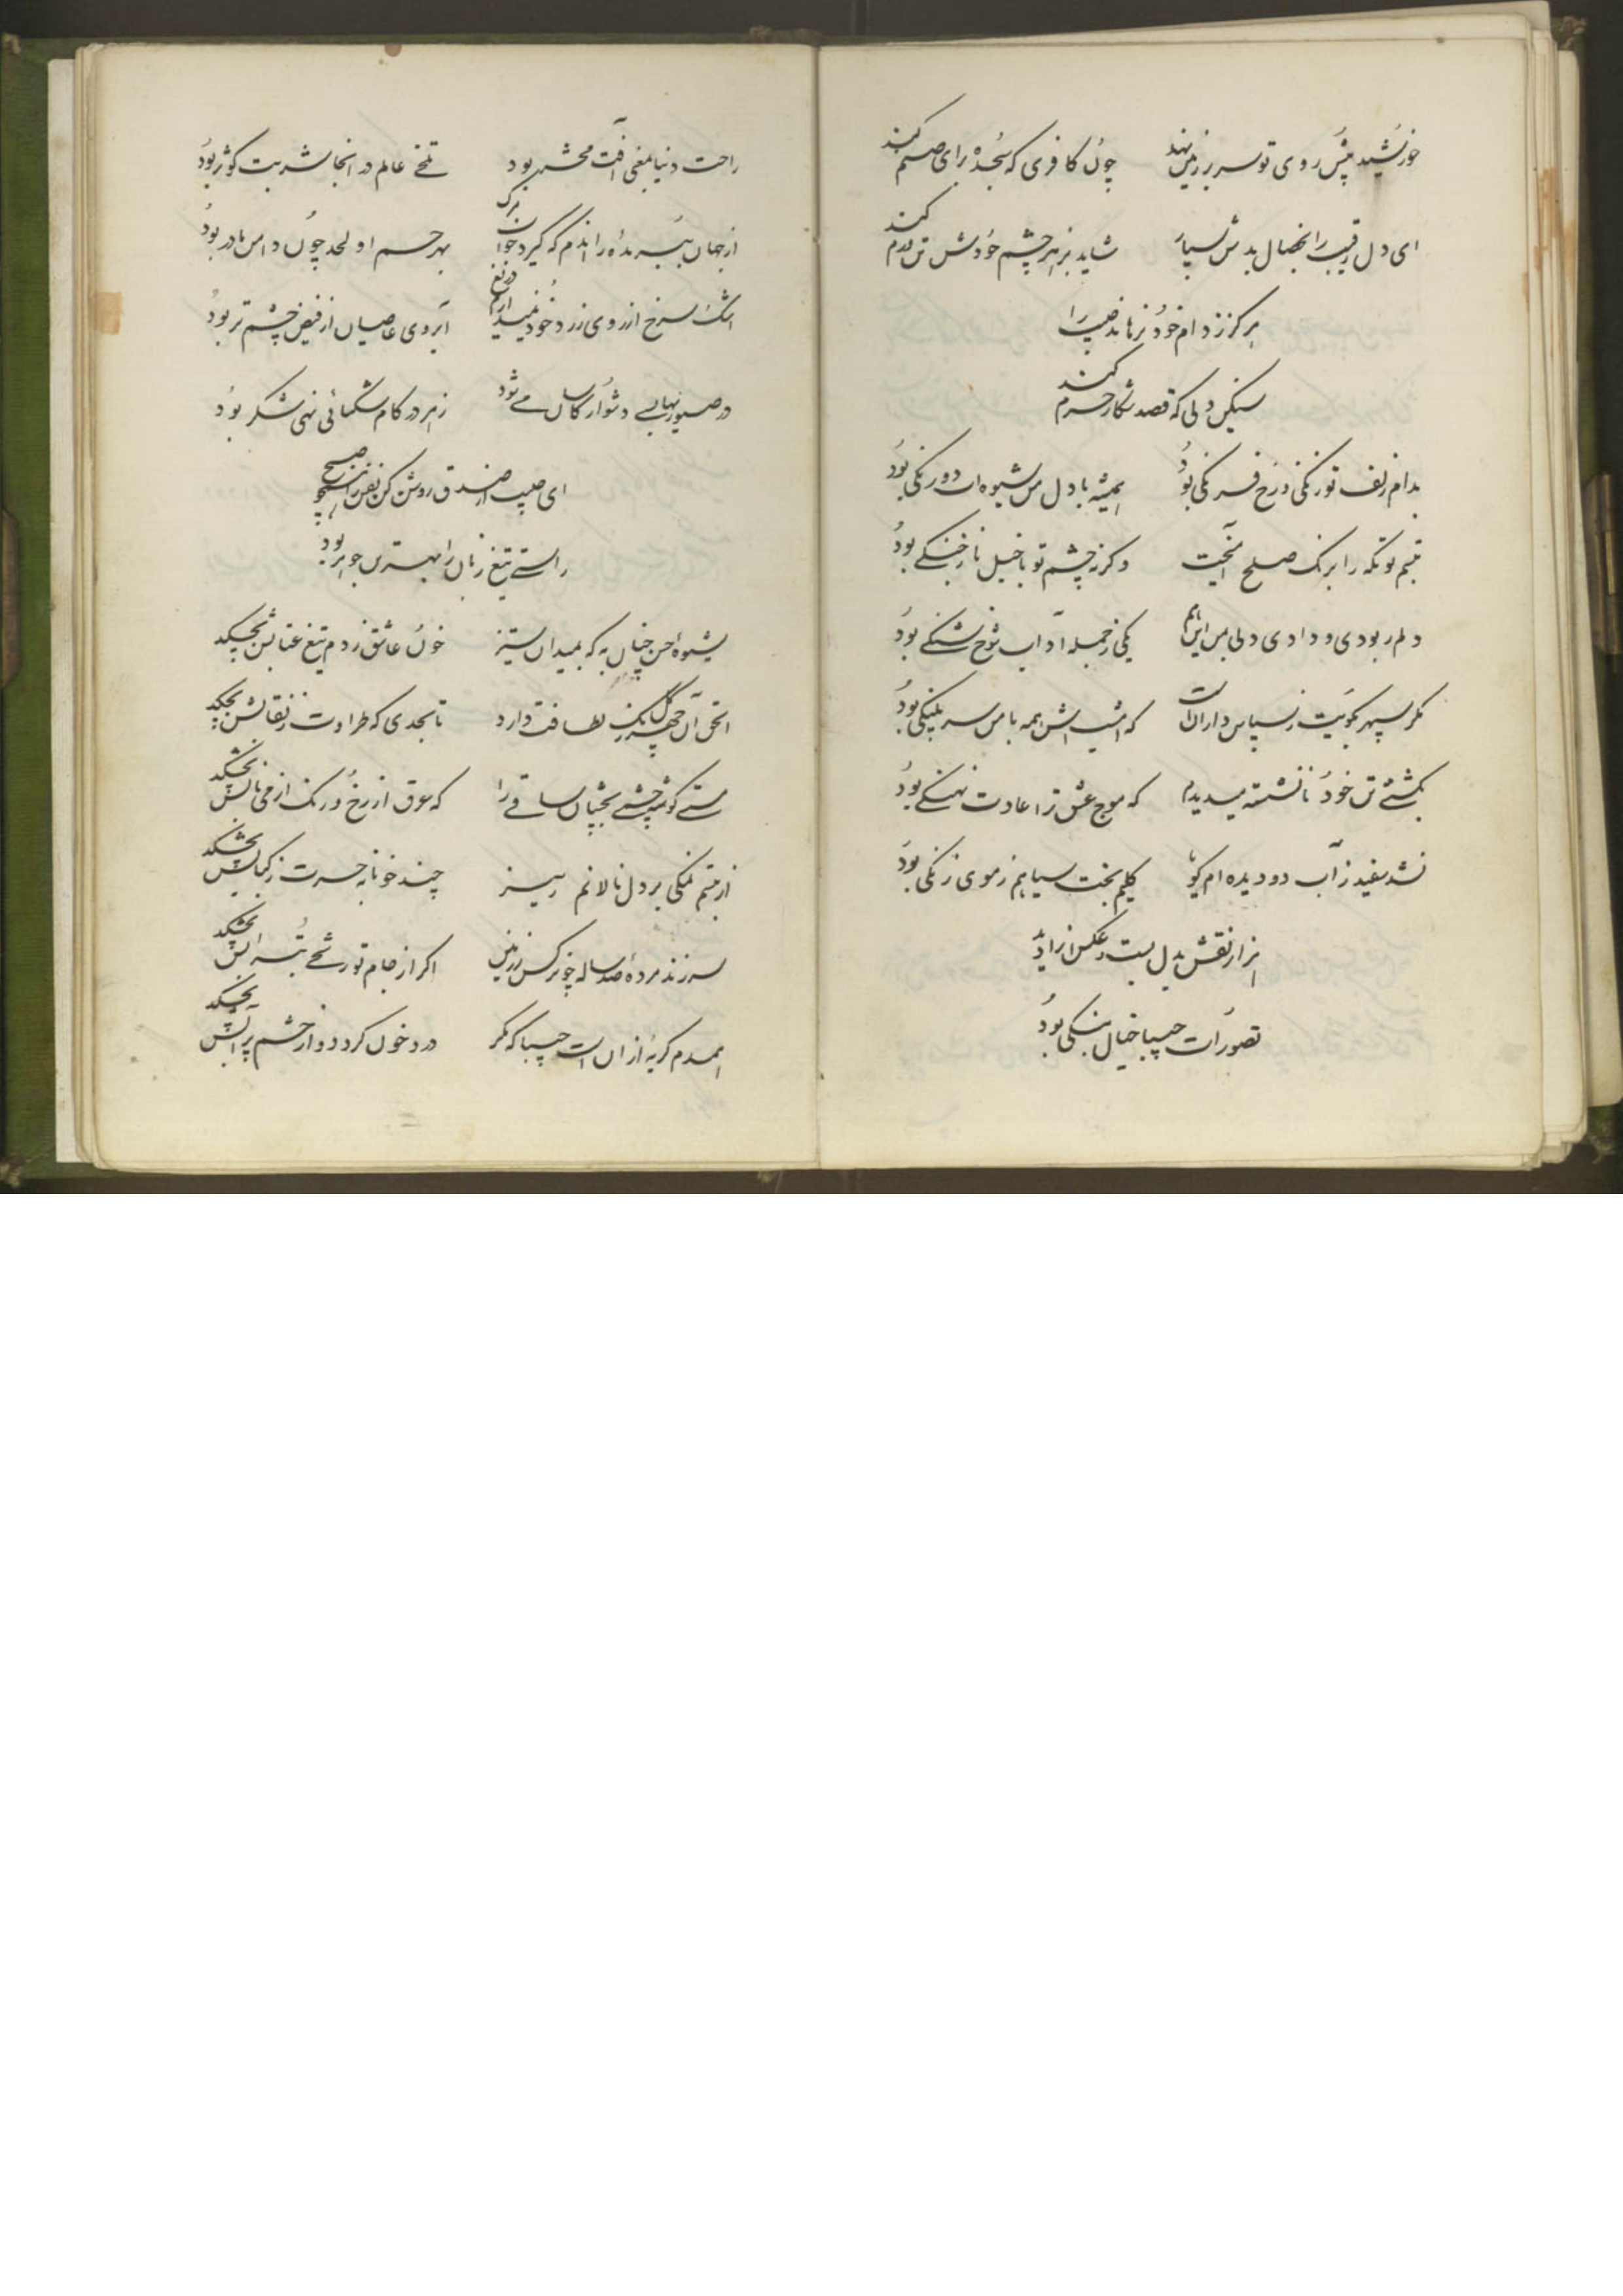 خورشید پیش روی تو سر بر زمین نهد چون کافری که سجده برای صنم کند
ای دل رقیب را بخصال بدش سپار شاید بزهر چشم خودش
هرکز ز دام خود نرهاند حبیب را
سنکین دلی که قصد شکار حرم کند
بدام زلف تو زنکی و رخ فرنکی بود همیشه با دل من شیوه ات دو رنکی بود
تبسم تو را برنک صلح وکر ز چشم تو با خیل ناز جنکی بود
دلم ربودی و دادی ولی بمن این هم یکی ز جمله آداب شوخ شنکی بود
مکر سپهر بکویت ز پاس داران است که امشب اش همه با من سر پلنکی بود
بکشتی تن خود نانشسته میدیدم که موج عشق ترا عادت نهنکی بود
نشد سفید ز آب دو دیده ام کویا کلیم بخت سیاهم ز موی زنکی بود
هزار نقش بدل بست و عکس ازو زاید
تصورات حبیبا خیال بنکی بود
راحت دنیا آفت محشر بود تلخی عالم در آنجا شربت کوثر بود
از جهان را اندم که کیرد خوان مرک بهر جسم او لحد چون دامن مادر بود
اشک سرخ از روی زرد خود نمیدارم دریغ آبروی عاصیان از فیض چشم تر بود
در صبوریها بسی دشوار کاسان می شود زهر در کام شکیبائی نی شکر بود
ای حبیب از صدق روشن کن نفس را همچو صبح
راستی تیغ زبان را بهترین جوهر بود
شیوه حسن چنان به که بمیدان ستیز خون عاشق ز دم تیغ عتابش بچکد
آن چهره کلرنک لطافت دارد تا بحدی که طراوت ز نقابش بچکد
مستی کوشه چشمی بچشان ساقی را که عرق از رخ و رنک از می نابش بچکد
از تبسم نمکی بر دل نالانم ریز چند خونابه حسرت ز کبابش بچکد
سر زند مرده صد ساله چو نرکس ز زمین اکر از جام تو رشحی بترابش بچکد
همدم کریه از آن است حبیبا که مکر درد خون کردد و از چشم پر آبش بچکد